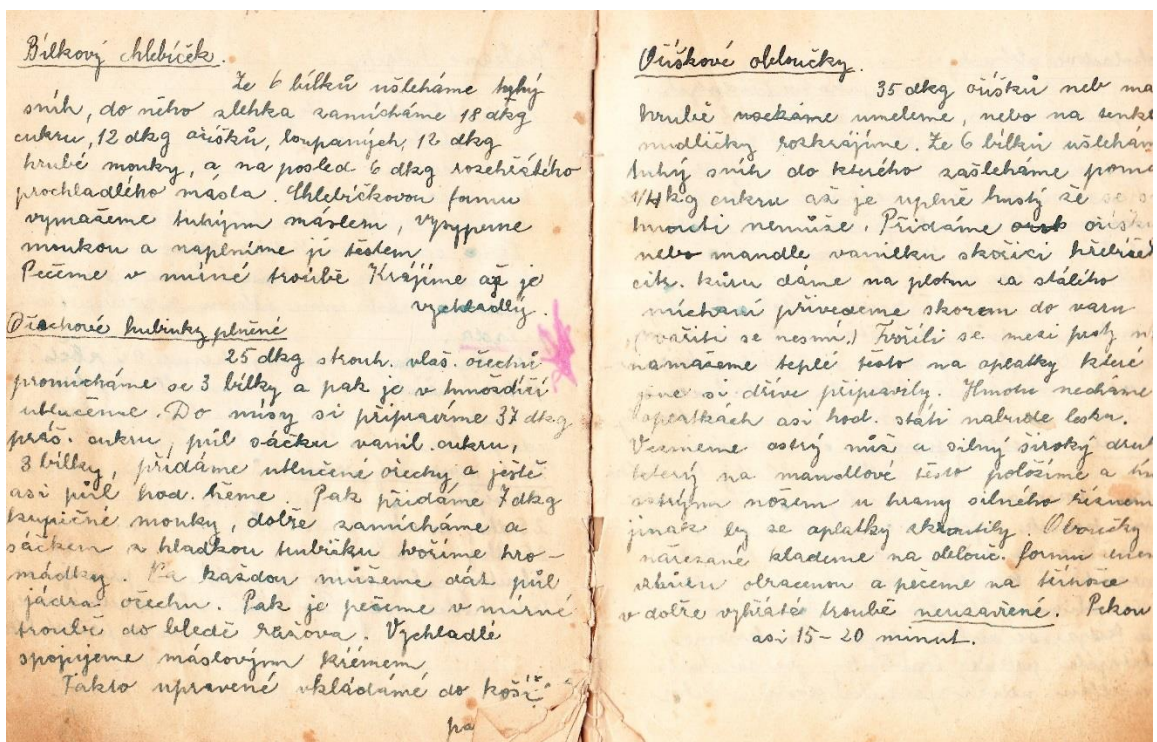 Bílkový chlebíček.
Ze 6 bílků ušleháme tuhý
sníh, do něho zlehka zamícháme 18 dkg
cukru, 12 dkg oříšků, loupaných, 12 dkg
hrubé mouky, a na posled 6 dkg rozehřátého
prochladlého másla. Chlebíčkovou formu
vymažeme tuhým máslem, vysypeme
moukou a naplníme jí těstem
Pečeme v mírné troubě Krájíme až je
vychladlý.
Ořechové hubinky plněné
25 dkg strouh. vlaš. ořechů
promícháme se 3 bílky a pak je v hmoždíři
utlučeme. Do mísy si připravíme 37 dkg
práš. cukru, půl sáčku vanil. cukru,
3 bílky, přidáme utlučené ořechy a ještě
asi půl hod. třeme. Pak přidáme 7 dkg
krupičné mouky, dobře zamícháme a
sáčkem z hladkou trubičku tvoříme hro-
mádky. Na každou můžeme dát půl
jádra ořechu. Pak je pečeme v mírné
troubě do bledě růžova. Vychladlé
spojujeme máslovým krémem
Takto upravené vkládámé do košíč
pa
Oříškové obloučky.
35 dkg oříšků neb ma
hrubě nesekáme umeleme, nebo na tenké
nudličky rozkrájíme. Ze 6 bílků ušlehám
tuhý sníh do kterého zašleháme poma
1/4 kg cukru až je uplně hustý že se
hnouti nemůže. Přidáme oříšk
nebo mandle vanilku skořici hřebíček
citr. kůru dáme na plotnu za stálého
míchání přivedeme skorem do varu
(vařiti se nesmí.) Tvoříli se mezi prsty ni
namažeme teplé těsto na oplatky které
jsme si dříve připravily. Hmotu necháme
oplatkách asi hod. státi nabude lesku.
Vezmeme ostrý nůž a silný široký drát
který na mandlové těsto položíme a tím
ostrým nozem u hrany silného řísneme
jinak by se oplatky zkroutily. Obloučky
nařezané klademe na oblouč. formu
obracenou a pečeme na
v dobře vyhřáté troubě neuzavřené. Pekou
asi 15-20 minut.